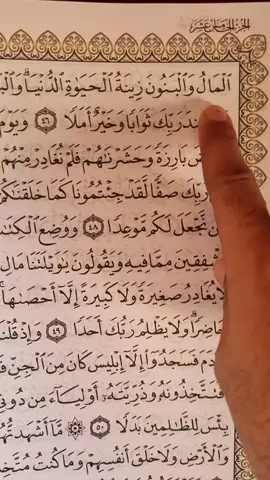 الجزء الخامس عشر
ٱلْمَالُ وَٱلْبَنُونَ زِينَةُ ٱلْحَيَوٰةِ ٱلدُّنْيَا ۖ
رَبِّكَ ثَوَابًا وَخَيْرٌ أَمَلًا ٤٦ وَيَوْمَ
بَارِزَةً وَحَشَرْنَٰهُمْ فَلَمْ نُغَادِرْ مِنْهُمْ
رَبِّكَ صَفًّا لَّقَدْ جِئْتُمُونَا كَمَا خَلَقْنَٰكُمْ
نَّجْعَلَ لَكُم مَّوْعِدًا ٤٨ وَوُضِعَ
مُشْفِقِينَ مِمَّا فِيهِ وَيَقُولُونَ يَٰوَيْلَتَنَا مَالِ
لَا يُغَادِرُ صَغِيرَةً وَلَا كَبِيرَةً إِلَّآ أَحْصَىٰهَا ۚ
حَاضِرًا ۗ وَلَا يَظْلِمُ رَبُّكَ أَحَدًا ٤٩ وَإِذْ قُلْنَا
فَسَجَدُوٓا۟ إِلَّآ إِبْلِيسَ كَانَ مِنَ ٱلْجِنِّ
أَفَتَتَّخِذُونَهُۥ وَذُرِّيَّتَهُۥٓ أَوْلِيَآءَ مِن دُونِى
بِئْسَ لِلظَّٰلِمِينَ بَدَلًا ٥٠ مَّآ أَشْهَدتُّهُمْ
وَٱلْأَرْضِ وَلَا خَلْقَ أَنفُسِهِمْ وَمَا كُنتُ